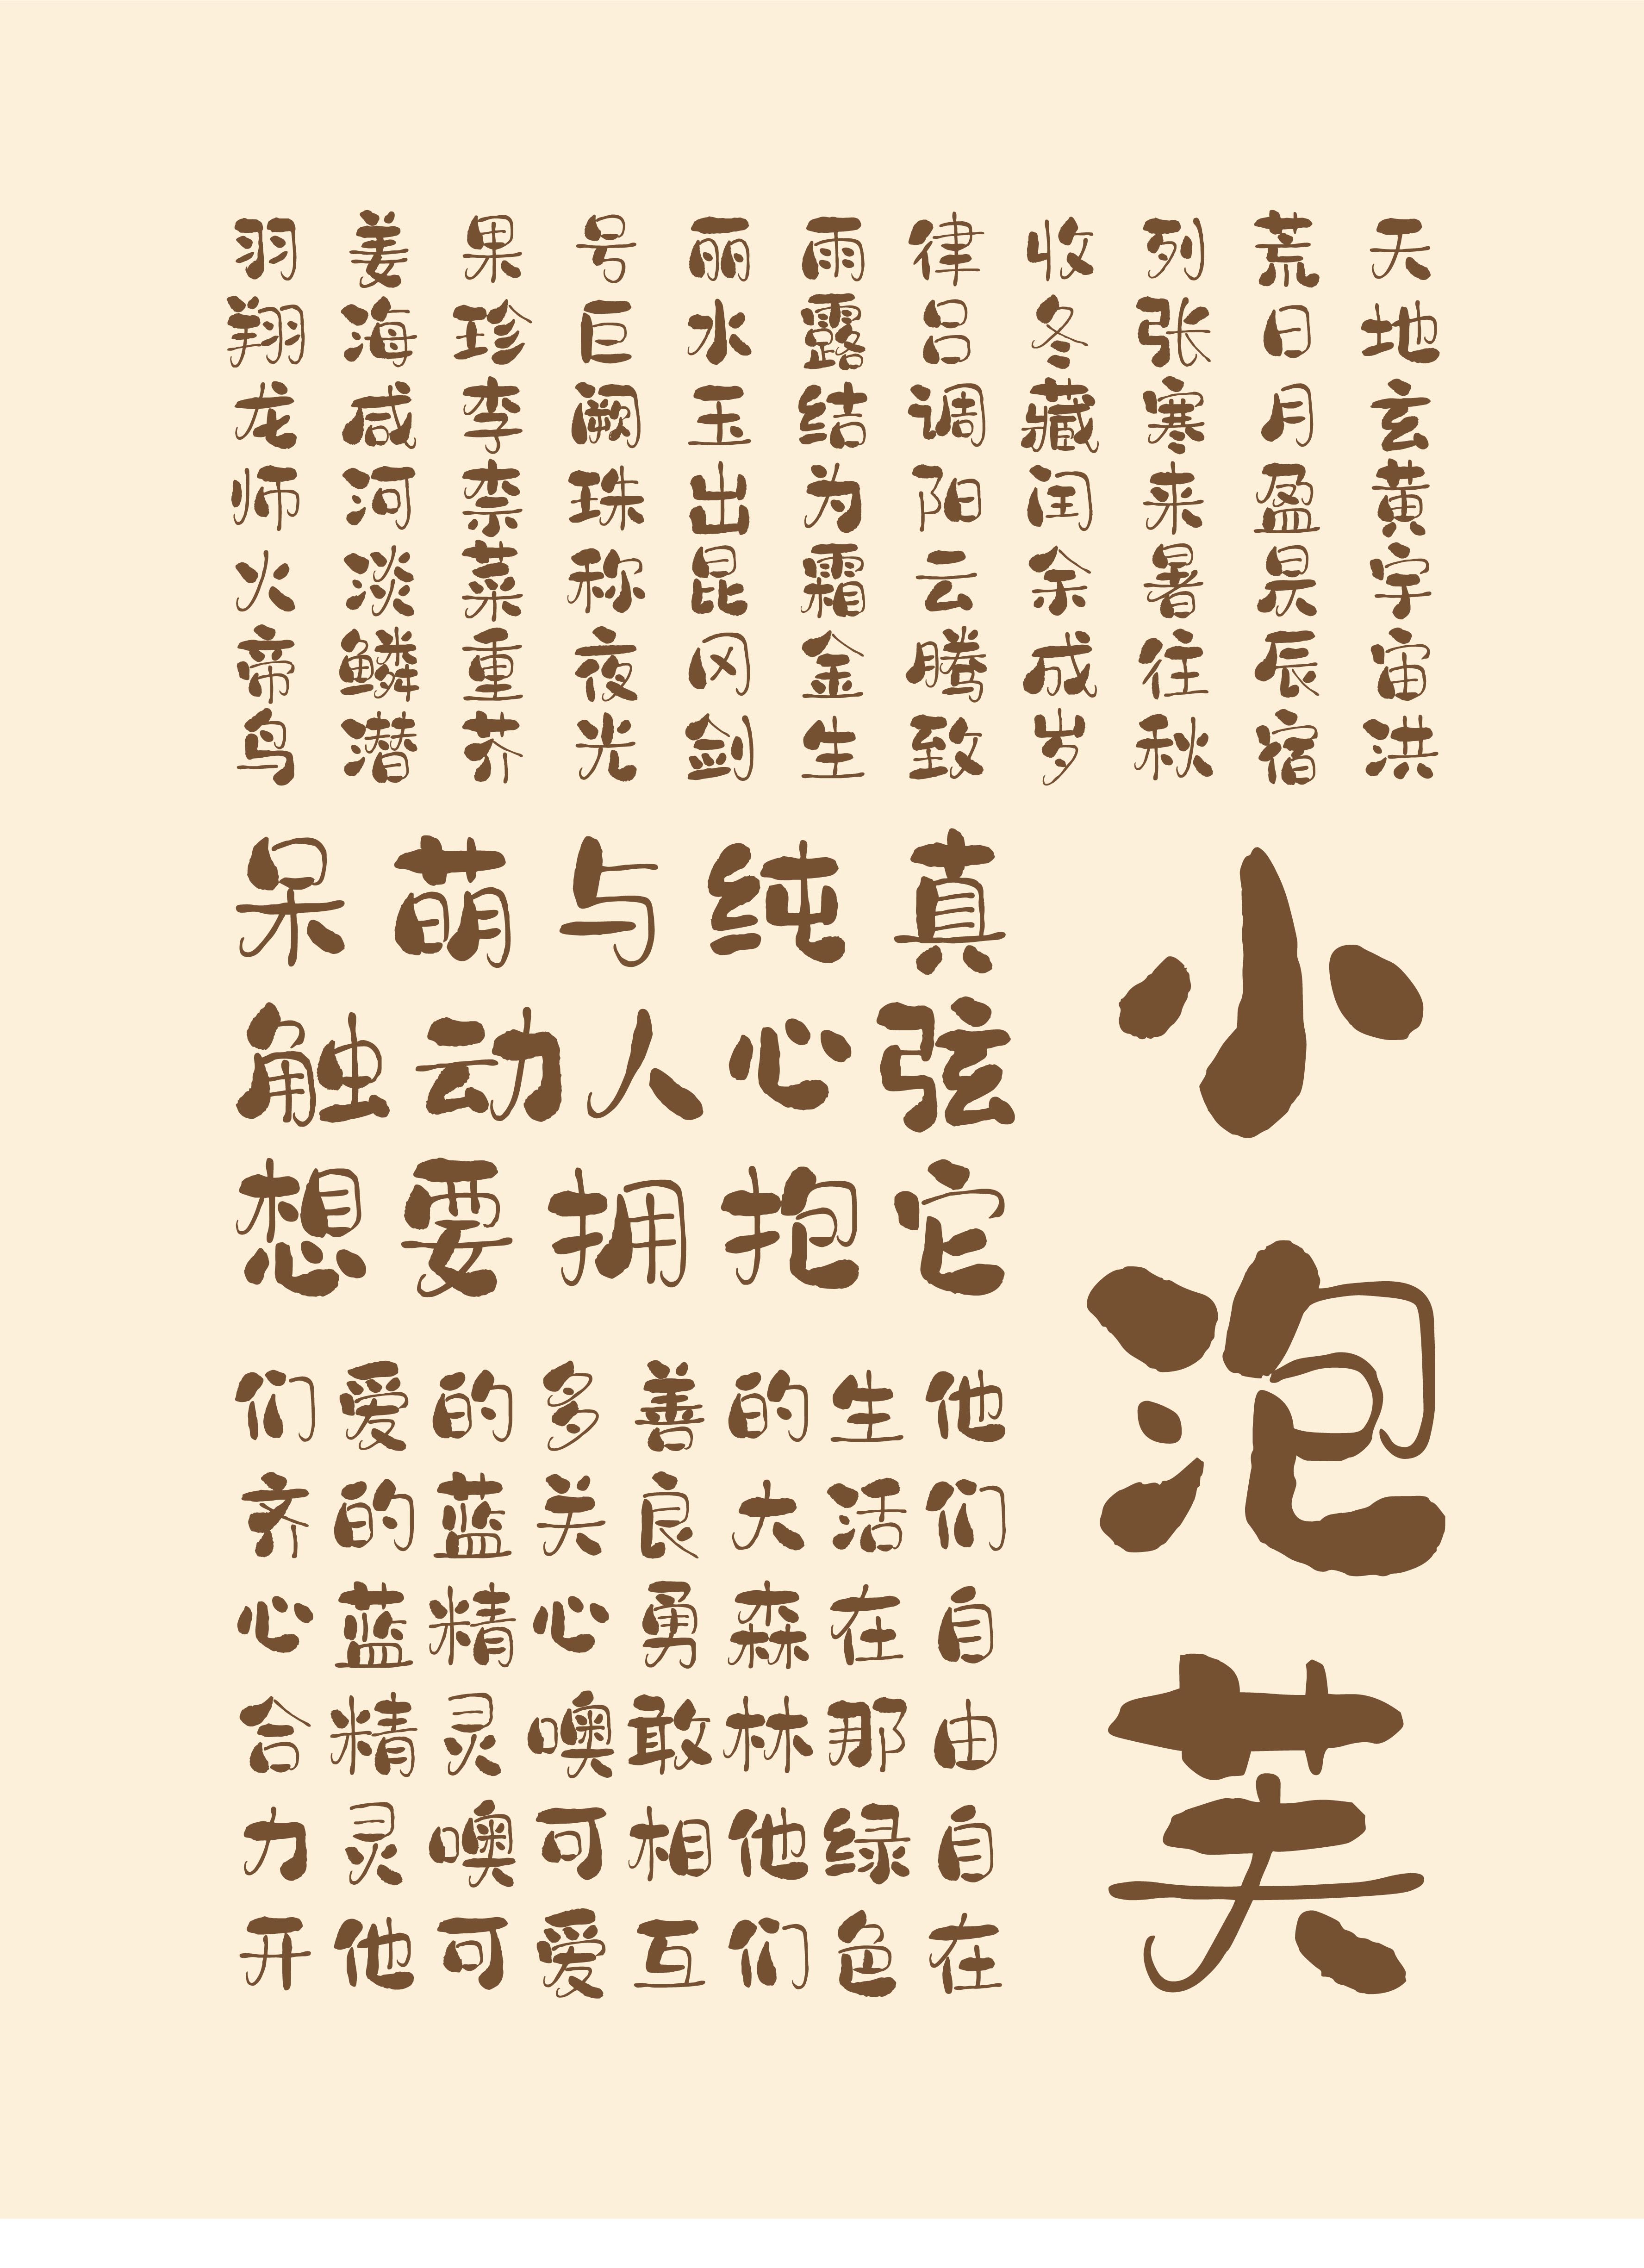 天地玄黄宇宙洪
荒日月盈昃辰宿
列张寒来暑往秋
收冬藏闰余成岁
律吕调阳云腾致
雨露结为霜金生
丽水玉出昆冈剑
号巨阙珠称夜光
果珍李柰菜重芥
姜海咸河淡鳞潜
羽翔龙师火帝鸟
小泡芙
呆萌与纯真
触动人心弦
想要拥抱它
他们自由自在
生活在那绿色
的大森林他们
善良勇敢相互
多关心噢可爱
的蓝精灵噢可
爱的蓝精灵他
们齐心合力开